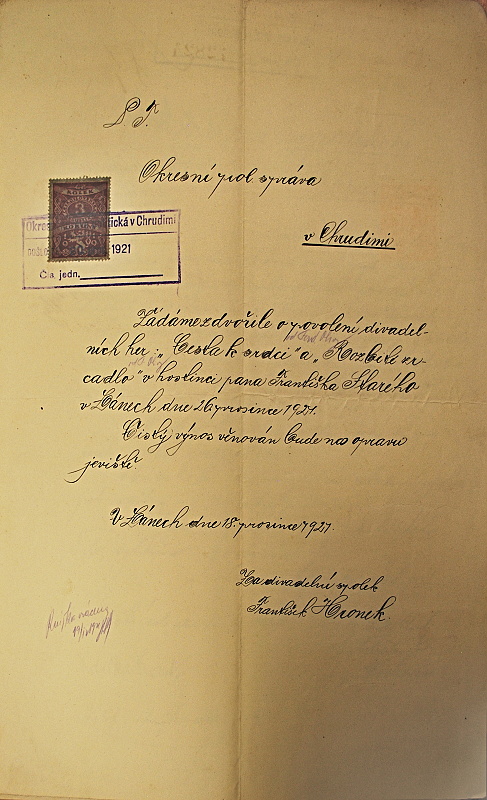 P. T.
Okresní pol. správa
v Chrudimi
KOLEK
3
Okres tická v Chrudimi
1921
Čís. jedn.
Žádáme zdvořile o povolení divadel-
ních her: „Cesta k srdci" a „Rozbité zr-
cadlo" v hostinci pana Františka Starého
v Lánech dne 26 prosince 1921.
Čistý výnos věnován bude na opravu
jeviště.
V Lánech dne 18. prosince 1921.
Za divadelní spolek
František Hronek.